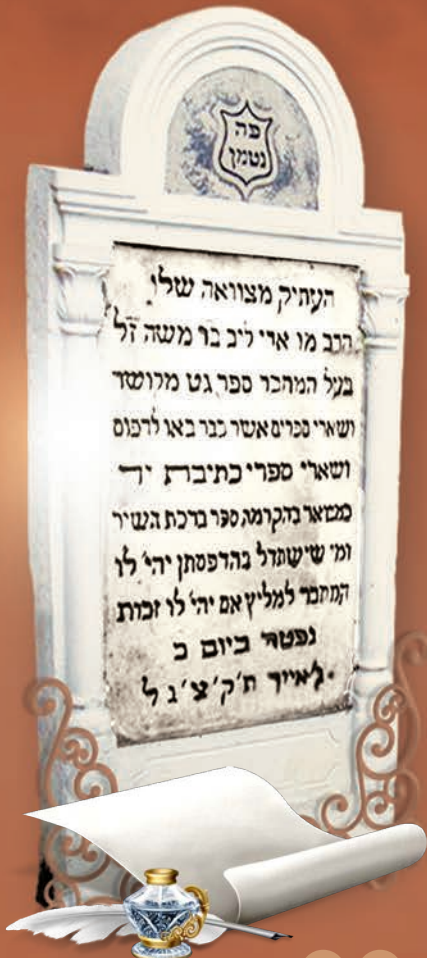 פה
נטמן
העתיק מצוואה שלו
הרב מו ארי ליב בר משה זל
בעל המחבר ספר גט מרושד
ושארי ספרים אשר כבר באו לדפוס
ושארי ספרי כתיבת יד
כמבואר בהקדמת ספר ברכת השיר
ומי שישתדל בהדפסתן יהי' לו
המחבר למליץ אם יהי' לו זכות
נפטר ביום כ
לאייר ת'ק'צ'ג ל